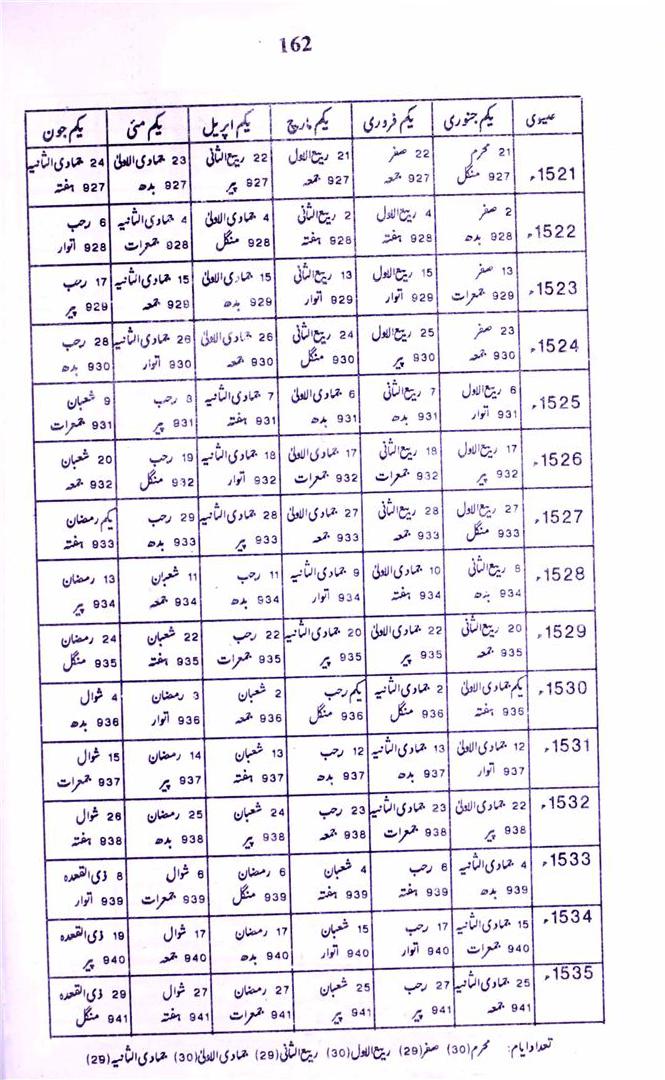 162
عیسوی یکم جنوری یکم فروری یکم مارچ یکم اپریل یکم مئی یکم جون
1521ء 21 محرم 22 صفر 21 ربیع الاول 22 ربیع الثانی 23 جمادی الاولیٰ 24 جمادی الثانیہ
927 منگل 927 جمعہ 927 جمعہ 927 پیر 927 بدھ 927 ہفتہ
1522ء 2 صفر 4 ربیع الاول 2 ربیع الثانی 4 جمادی الاولیٰ 4 جمادی الثانیہ 6 رجب
928 بدھ 928 ہفتہ 928 ہفتہ 928 منگل 928 جمعرات 928 اتوار
1523ء 13 صفر 15 ربیع الاول 13 ربیع الثانی 15 جمادی الاولیٰ 15 جمادی الثانیہ 17 رجب
929 جمعرات 929 اتوار 929 اتوار 929 بدھ 929 جمعہ 929 پیر
1524ء 23 صفر 25 ربیع الاول 24 ربیع الثانی 26 جمادی الاولیٰ 26 جمادی الثانیہ 28 رجب
930 جمعہ 930 پیر 930 منگل 930 جمعہ 930 اتوار 930 بدھ
1525ء 6 ربیع الاول 7 ربیع الثانی 6 جمادی الاولیٰ 7 جمادی الثانیہ 8 رجب 9 شعبان
931 اتوار 931 بدھ 931 بدھ 931 ہفتہ 931 پیر 931 جمعرات
1526ء 17 ربیع الاول 18 ربیع الثانی 17 جمادی الاولیٰ 18 جمادی الثانیہ 19 رجب 20 شعبان
932 پیر 932 جمعرات 932 جمعرات 932 اتوار 932 منگل 932 جمعہ
1527ء 27 ربیع الاول 28 ربیع الثانی 27 جمادی الاولیٰ 28 جمادی الثانیہ 29 رجب یکم رمضان
933 منگل 933 جمعہ 933 جمعہ 933 پیر 933 بدھ 933 ہفتہ
1528ء 8 ربیع الثانی 10 جمادی الاولیٰ 9 جمادی الثانیہ 11 رجب 11 شعبان 13 رمضان
934 بدھ 934 ہفتہ 934 اتوار 934 بدھ 934 جمعہ 934 پیر
1529ء 20 ربیع الثانی 22 جمادی الاولیٰ 20 جمادی الثانیہ 22 رجب 22 شعبان 24 رمضان
935 جمعہ 935 پیر 935 پیر 935 جمعرات 935 ہفتہ 935 منگل
1530ء یکم جمادی الاولیٰ 2 جمادی الثانیہ یکم رجب 2 شعبان 3 رمضان 4 شوال
936 ہفتہ 936 منگل 936 منگل 936 جمعہ 936 اتوار 936 بدھ
1531ء 12 جمادی الاولیٰ 13 جمادی الثانیہ 12 رجب 13 شعبان 14 رمضان 15 شوال
937 اتوار 937 بدھ 937 بدھ 937 ہفتہ 937 پیر 937 جمعرات
1532ء 22 جمادی الاولیٰ 23 جمادی الثانیہ 23 رجب 24 شعبان 25 رمضان 26 شوال
938 پیر 938 جمعرات 938 جمعہ 938 پیر 938 بدھ 938 ہفتہ
1533ء 4 جمادی الثانیہ 6 رجب 4 شعبان 6 رمضان 6 شوال 8 ذی القعدہ
939 بدھ 939 ہفتہ 939 ہفتہ 939 منگل 939 جمعرات 939 اتوار
1534ء 15 جمادی الثانیہ 17 رجب 15 شعبان 17 رمضان 17 شوال 19 ذی القعدہ
940 جمعرات 940 اتوار 940 اتوار 940 بدھ 940 جمعہ 940 پیر
1535ء 25 جمادی الثانیہ 27 رجب 25 شعبان 27 رمضان 27 شوال 29 ذی القعدہ
941 جمعہ 941 پیر 941 پیر 941 جمعرات 941 ہفتہ 941 منگل
تعداد ایام: محرم (30) صفر (29) ربیع الاول (30) ربیع الثانی (29) جمادی الاولیٰ (30) جمادی الثانیہ (29)